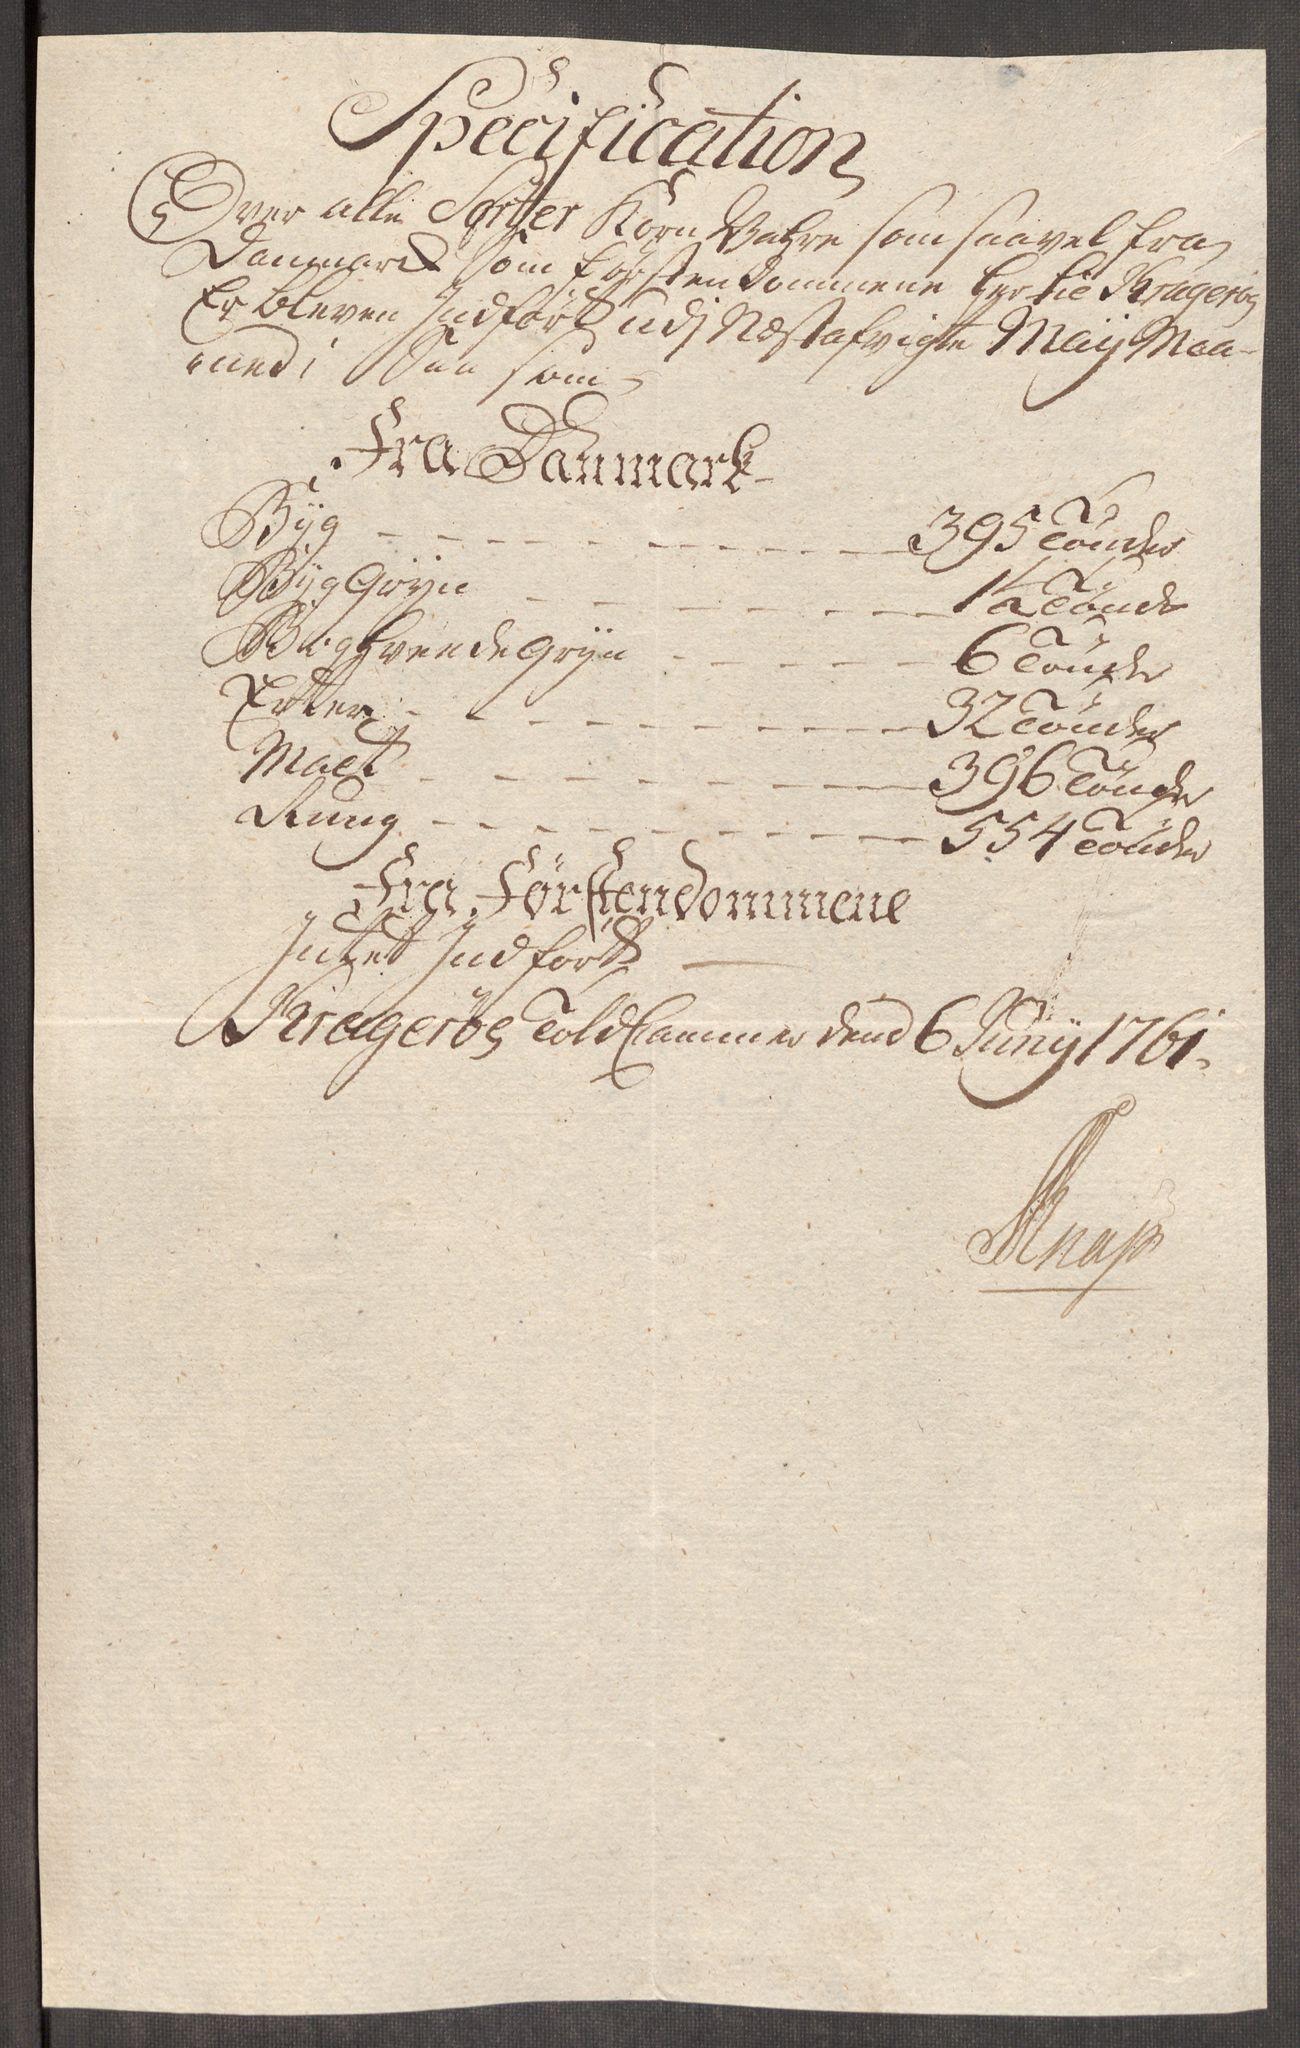 Specification
Over alle Sorter Korn Vahre som saavel fra
Danmark som Førstendommene her til Krageröe
Er bleven Indført udj Næstafvigte Maij Maa-
ned; Saa som
Fra Danmark
Byg 395 Tönder
Byg Gryn 1½ Tönde
Boghvende Gryn 6 Tönder
Ertter 32 Tönder
Malt 396 Tönder
Rung 554 Tönder
Fra Førstendommene
Intet Indført
Krageröe Told Cammer dend 6 Junij 1761.
Knap